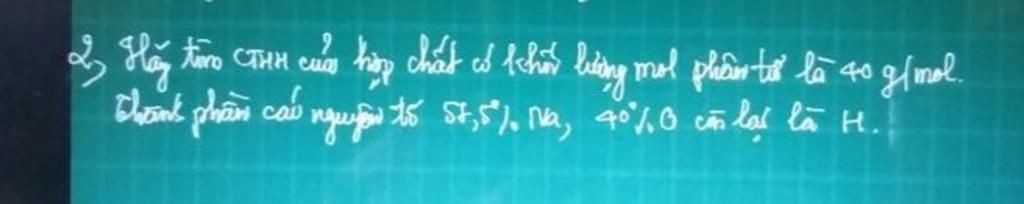 2, Hãy tìm CTHH của hợp chất có khối lượng mol phân tử là 40 g/mol.
Thành phần các nguyên tố 57,5% Na, 40% O còn lại là H.